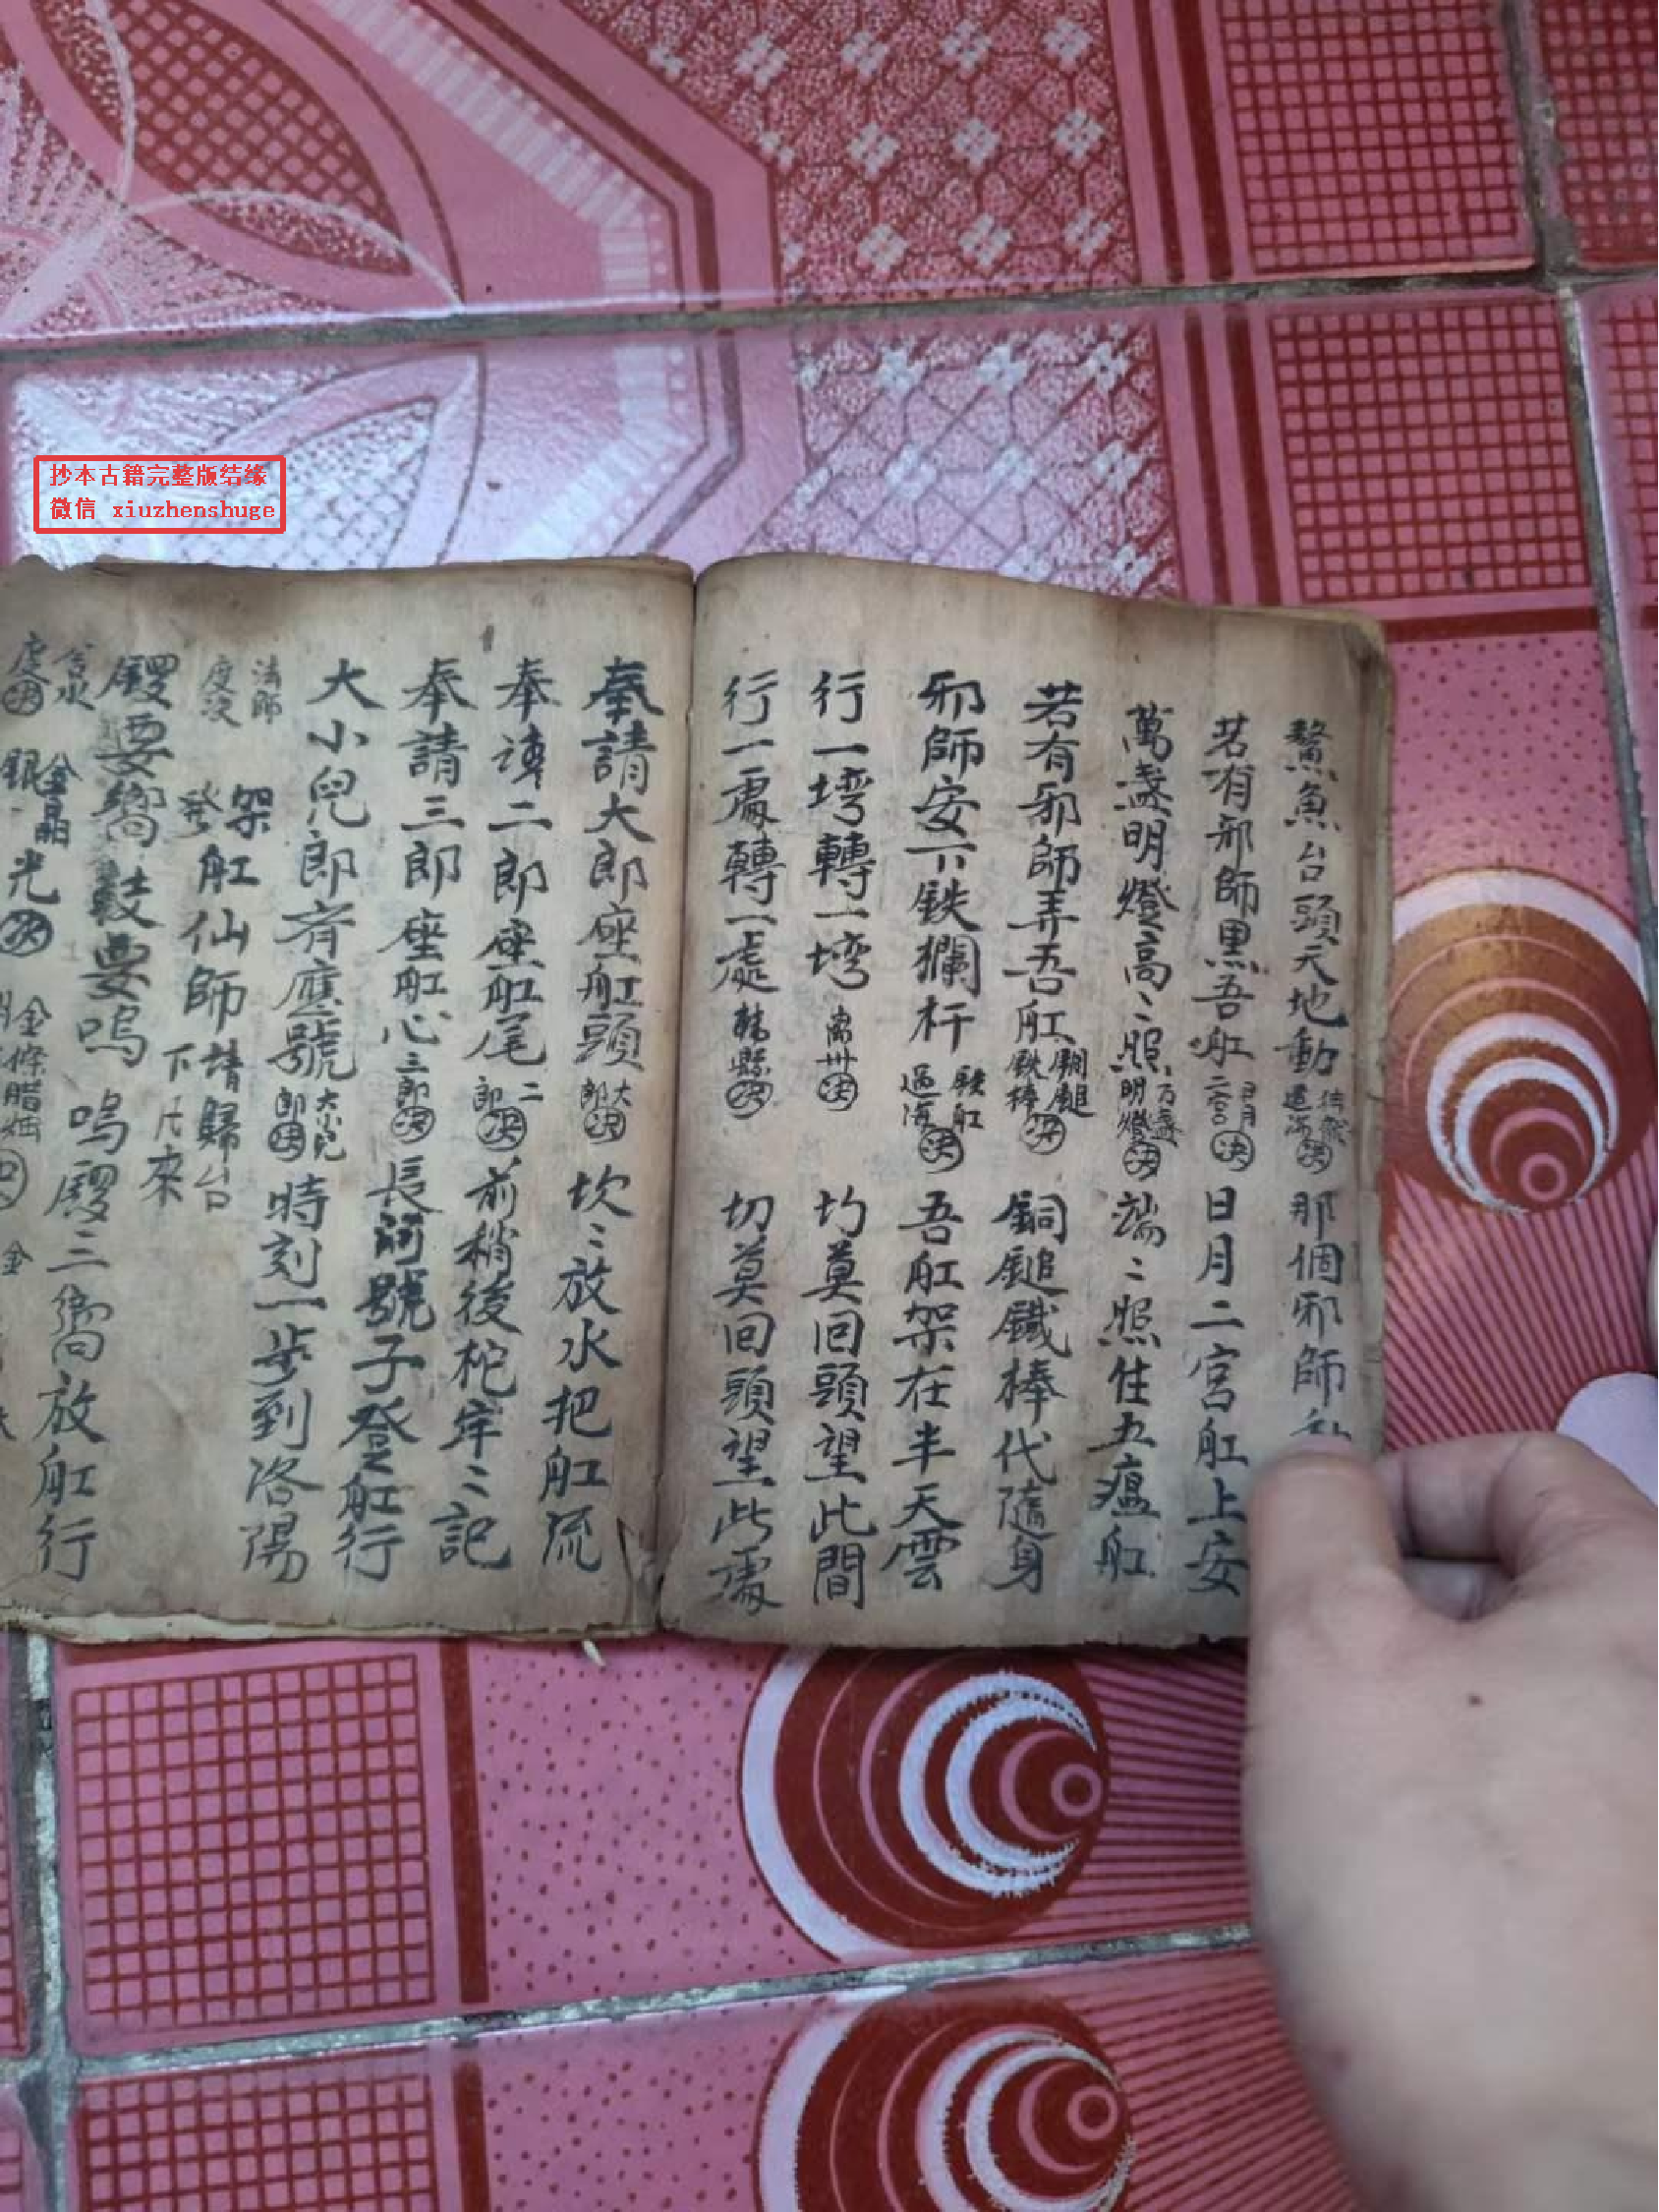 抄本古籍完整版结缘
微信 xiuzhenshuge
鰲魚台頭天地動 那個邪師
若有邪師黑吾舡 日月二宮 決 日月二宮舡上安
萬盞明燈高〻照 万盞明燈 決 端〻照住五瘟舡
若有邪師弄吾舡 銅鎚鉄棒 決 銅鎚鐵棒代隨身
邪師安下鉄攔杆 鉄舡過海 決 吾舡架在半天雲
行一塆轉一塆 決 切莫回頭望此間
行一處轉一處 決 切莫回頭望此處
奉請大郎座舡頭 大郎 決 坎〻放水把舡流
奉請二郎座舡尾 二郎 決 前稍後柁牢〻記
奉請三郎座舡心 三郎 決 長前號子登舡行
大小兒郎齊應號 大小兒郎 決 時刻一步到洛陽
法師度次 架舡仙師請歸台
發 下凡來
鑼要響鼓要鳴 鳴鑼三響放舡行
金晶
銀 光 決